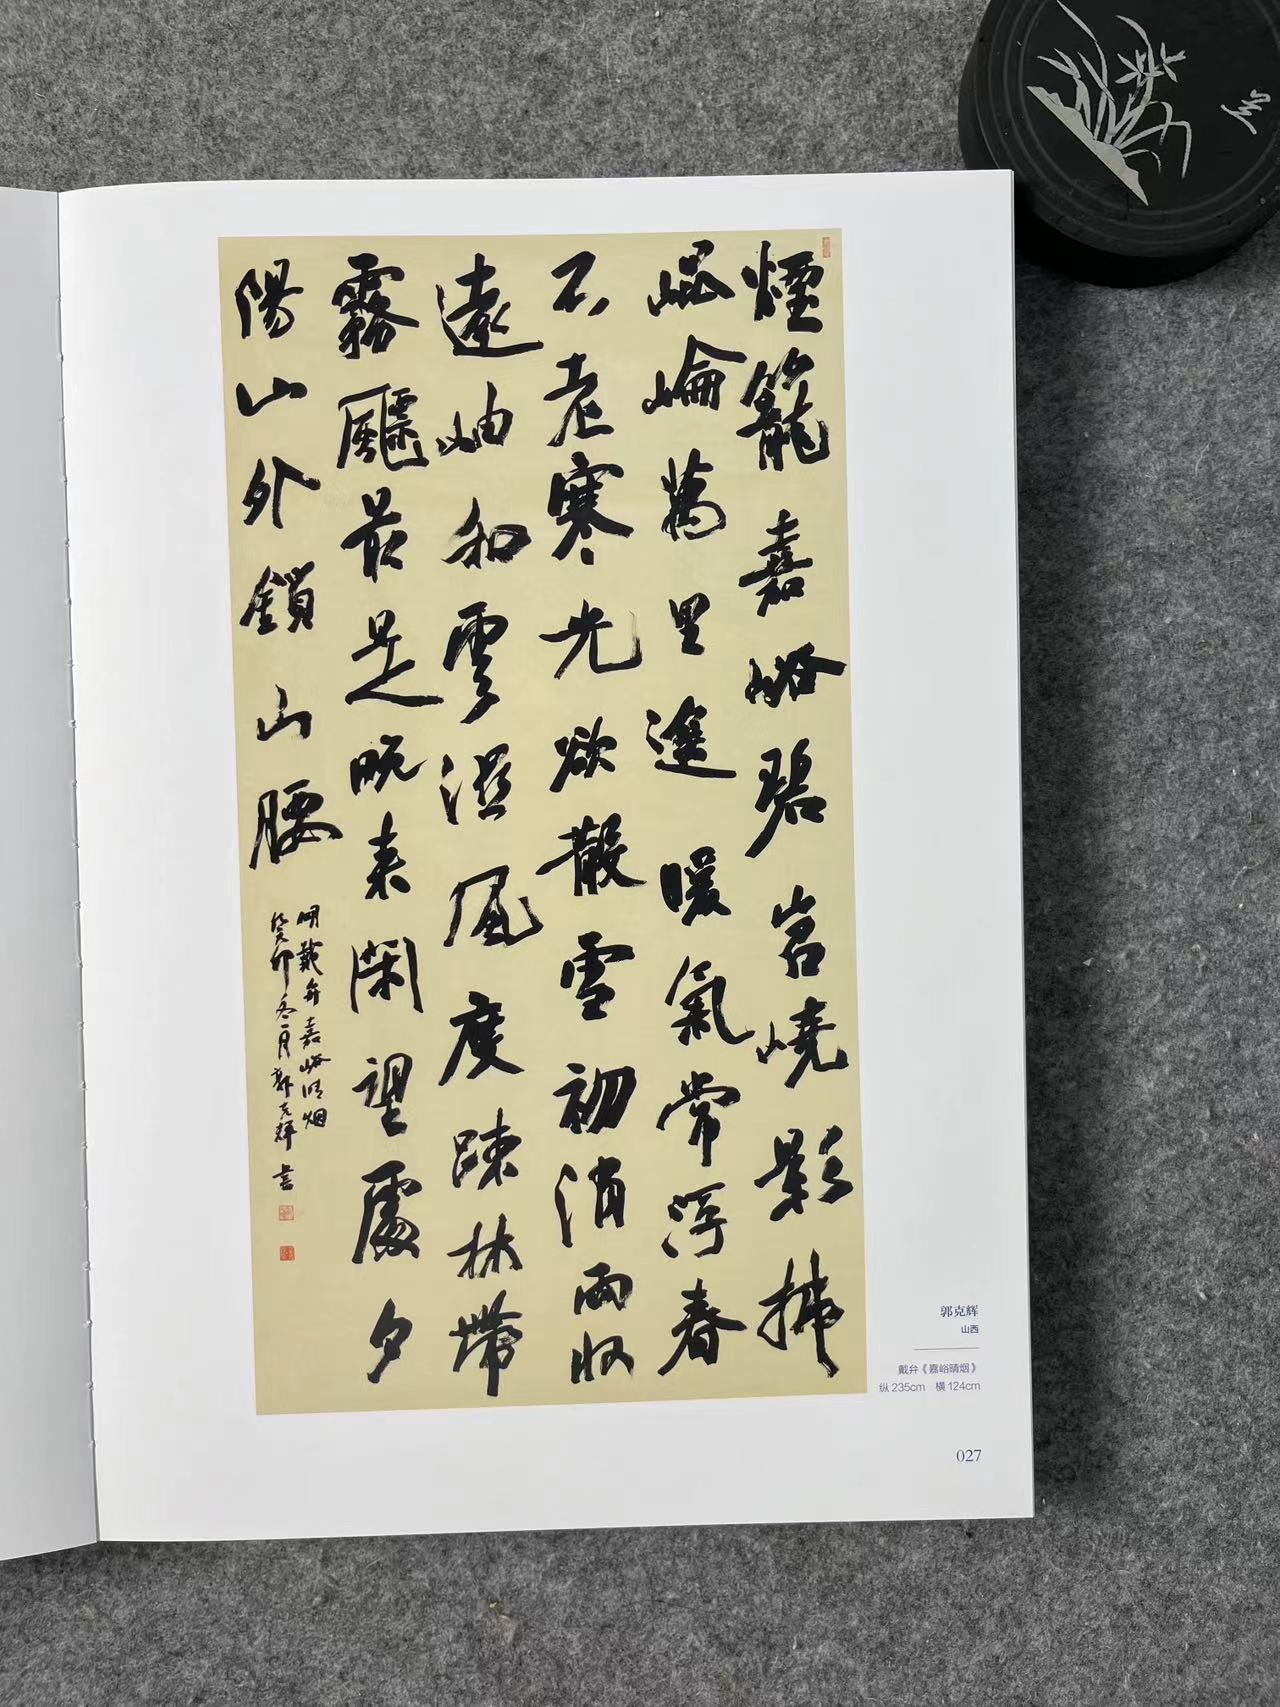 煙籠嘉峪碧岧嶢影拂
崐崘萬里遙暖氣常浮春
不老寒光欲散雪初消雨收
遠岫和雲濕風度踈林帶
霧飄最是晚來閑望處夕
陽山外鎖山腰
明戴弁嘉峪晴烟
癸卯冬月郭克輝書
郭克辉
山西
戴弁《嘉峪晴烟》
纵 235cm 横 124cm
027